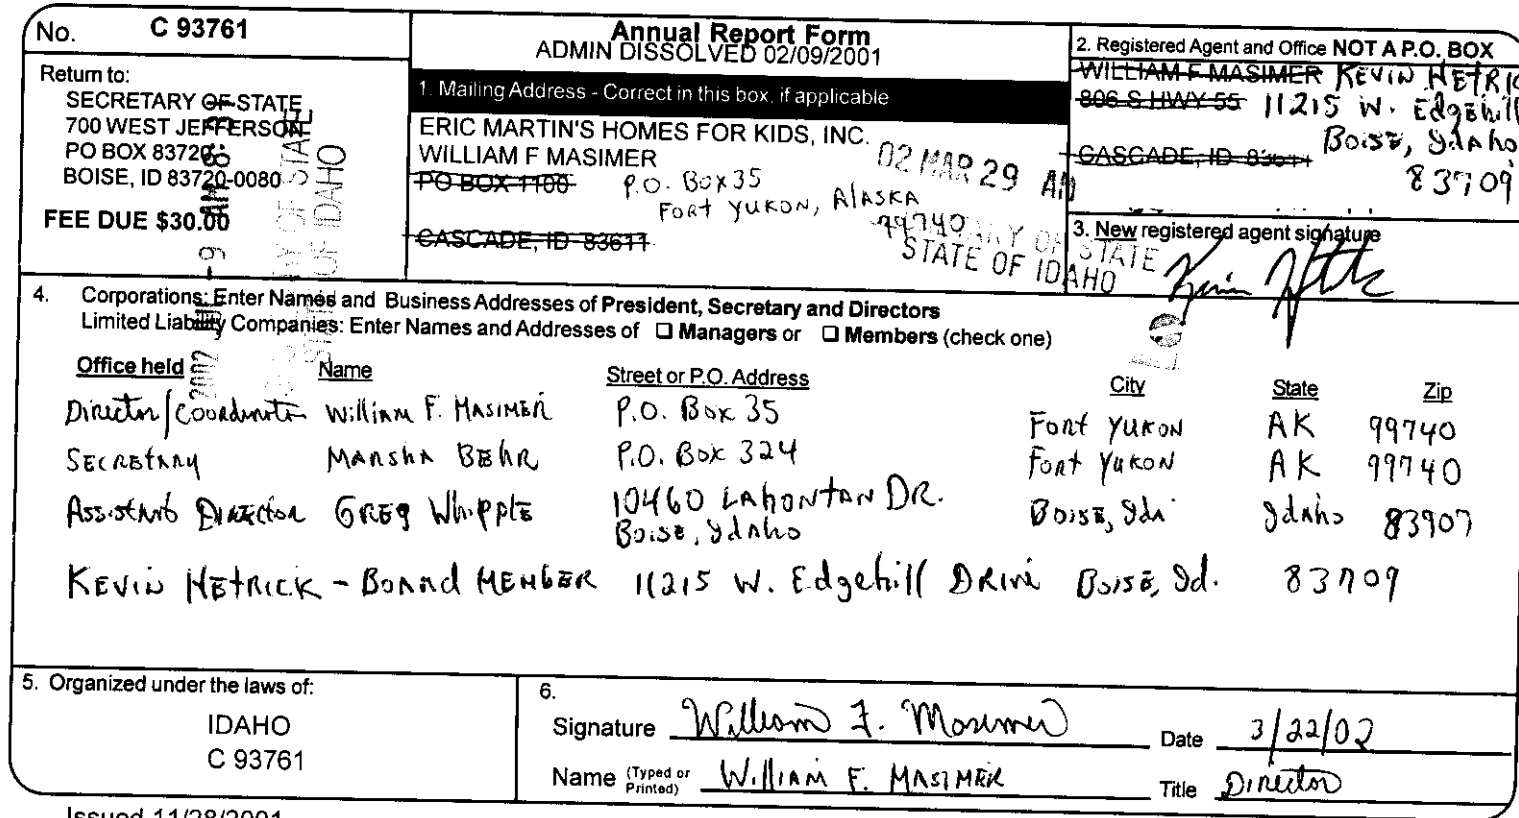 No. C 93761
Return to:
SECRETARY OF STATE
700 WEST JEFFERSON
PO BOX 83720
BOISE, ID 83720-0080
FEE DUE $30.00
Annual Report Form
ADMIN DISSOLVED 02/09/2001
1. Mailing Address - Correct in this box, if applicable
ERIC MARTIN'S HOMES FOR KIDS, INC.
WILLIAM F MASIMER
PO BOX 1100 P.O. Box 35
Fort Yukon, Alaska
99740
CASCADE, ID 83611
02 MAR 29 AM
STATE OF IDAHO
2. Registered Agent and Office NOT A P.O. BOX
WILLIAM F MASIMER KEVIN HETRIC
806 S HWY 55 11215 W. Edgehill
Boise, Idaho
CASCADE, ID 83611
83709
3. New registered agent signature
Kevin
4. Corporations: Enter Names and Business Addresses of President, Secretary and Directors
Limited Liability Companies: Enter Names and Addresses of ☐ Managers or ☐ Members (check one)
Office held Name Street or P.O. Address City State Zip
Director/Coordinator William F. Masimer P.O. Box 35 Fort Yukon AK 99740
Secretary Marsha Behr P.O. Box 324 Fort Yukon AK 99740
Assistant Director Greg Whipple 10460 Lahontan DR. Boise, Ida Idaho 83907
Boise, Idaho
Kevin Hetrick - Board Member 11215 W. Edgehill Drive Boise, Id. 83709
5. Organized under the laws of:
IDAHO
C 93761
6.
Signature William F. Masimer Date 3/22/02
Name (Typed or Printed) William F. Masimer Title Director
Issued 11/28/2001